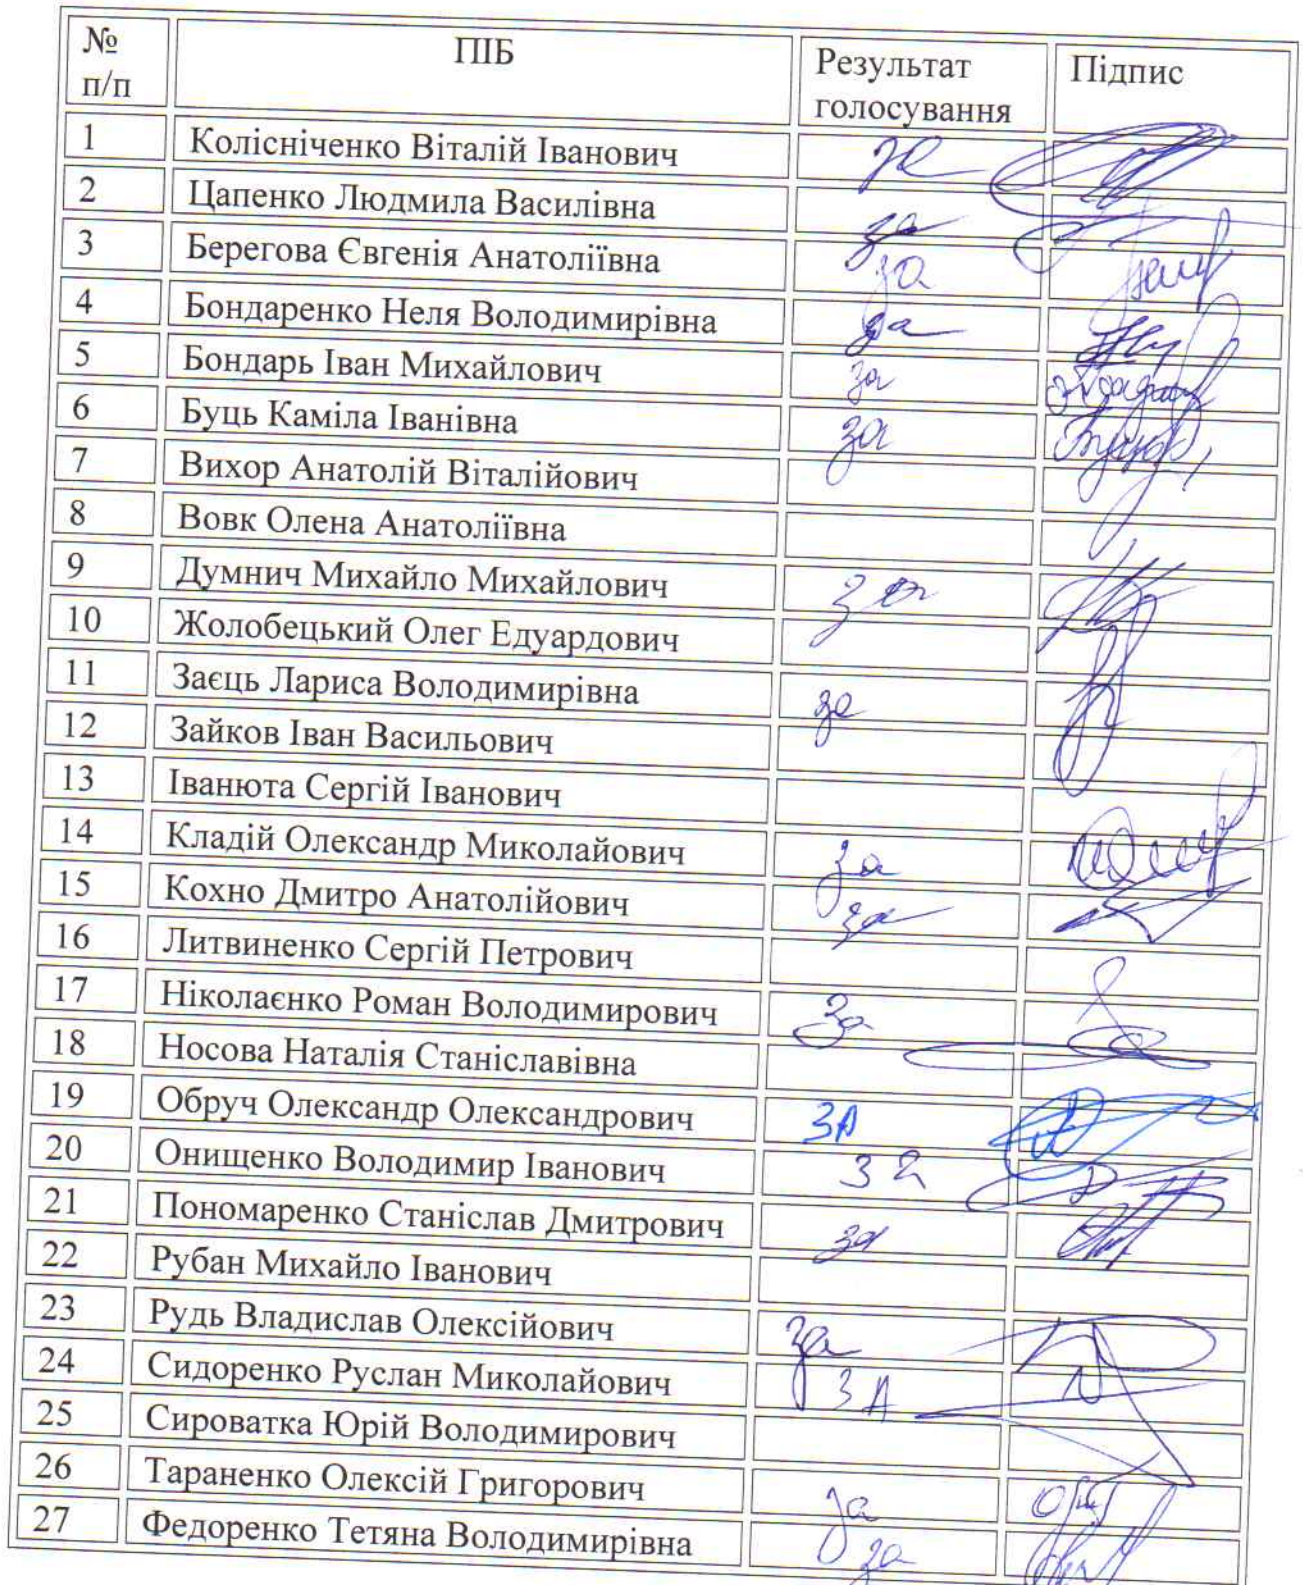 № п/п ПІБ Результат голосування Підпис
1 Колісніченко Віталій Іванович за
2 Цапенко Людмила Василівна за
3 Берегова Євгенія Анатоліївна за
4 Бондаренко Неля Володимирівна за
5 Бондарь Іван Михайлович за
6 Буць Каміла Іванівна за
7 Вихор Анатолій Віталійович
8 Вовк Олена Анатоліївна
9 Думнич Михайло Михайлович за
10 Жолобецький Олег Едуардович
11 Заєць Лариса Володимирівна за
12 Зайков Іван Васильович
13 Іванюта Сергій Іванович
14 Кладій Олександр Миколайович за
15 Кохно Дмитро Анатолійович за
16 Литвиненко Сергій Петрович
17 Ніколаєнко Роман Володимирович За
18 Носова Наталія Станіславівна
19 Обруч Олександр Олександрович ЗА
20 Онищенко Володимир Іванович За
21 Пономаренко Станіслав Дмитрович за
22 Рубан Михайло Іванович
23 Рудь Владислав Олексійович за
24 Сидоренко Руслан Миколайович ЗА
25 Сироватка Юрій Володимирович
26 Тараненко Олексій Григорович за
27 Федоренко Тетяна Володимирівна за